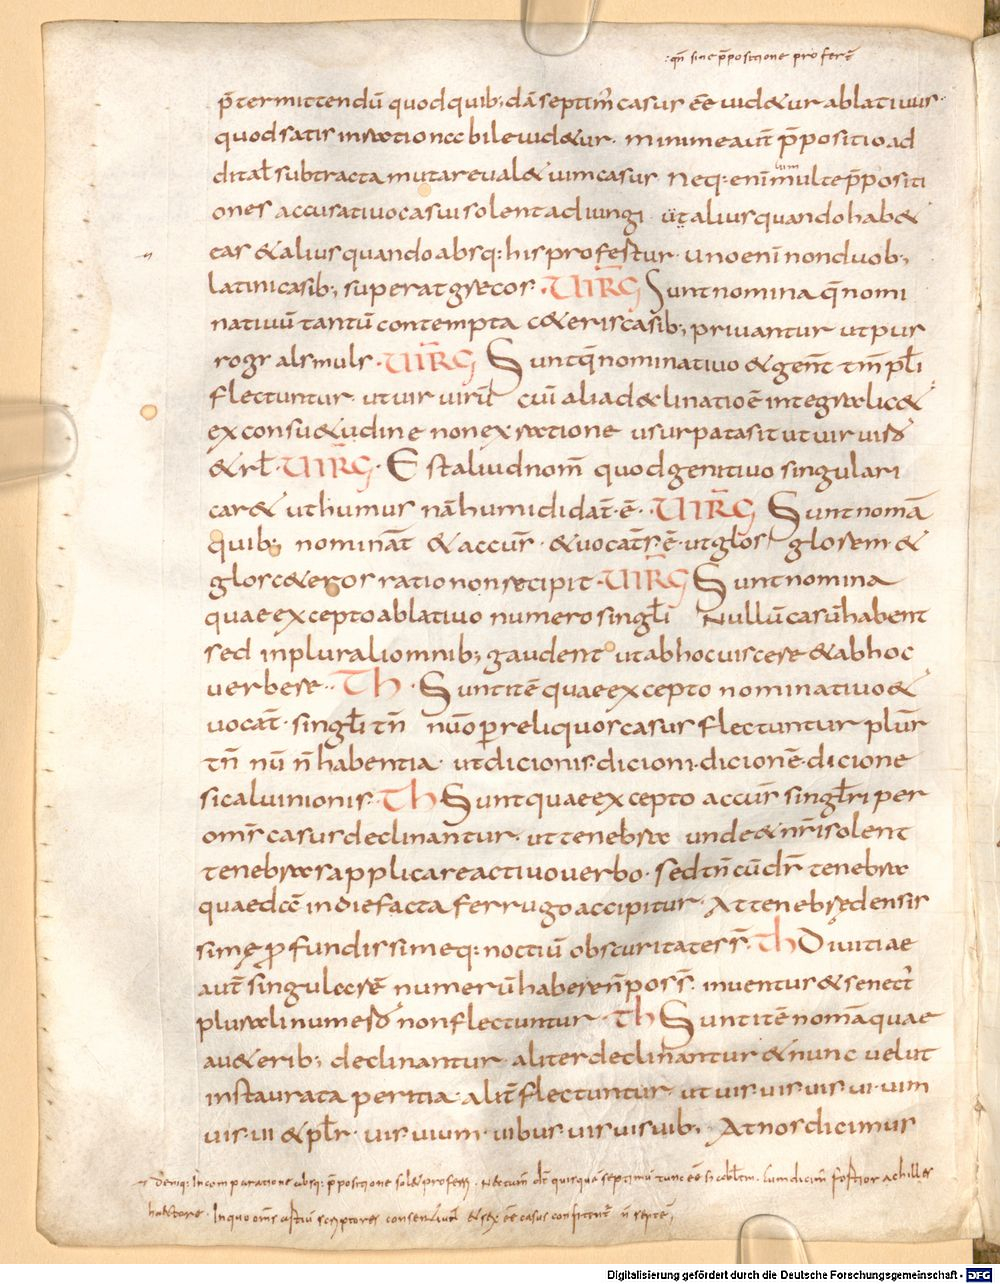 :qn̄ sine p̄positione profert̄
p̄termittendū quodquib; dā septim̄ casus ēē uid&ur ablatiuus·
quod satis inrationabile uid&ur· minime aut̄ p̄positio ad
dita ł subtracta mutare ual& uim casus Neq: enī multę p̄positi
ones accusatiuo casui solent adiungi ut alius quando hab&
eas & alius quando absq: his profestur· Uno enī non duob;
latini casib; superat grecos· VIRG̅ Sunt nomina q̄ nomi
natiuū tantū contempta c&eris casib; priuantur ut pus
ros ł als muls· VIRG̅ Sunt q̄ nominatiuo & gent̄ tm̄ pl̄i
flectuntur· ut uir uirū cuī alia declinatio ē integra lic&
ex consu&udine non ex ratione usurpata sit ut uir uirō
& rł· VIRG̅· Est aliud nom̄ quod genitiuo singulari
car& ut humus nā humi did dat̄ ē· VIRG̅ Sunt nomā
quib; nominat̄ & accus̄· & uocat̄s ē· ut glos glosem &
glos c&eros ratio non recipit· VIRG̅ Sunt nomina
quae excepto ablatiuo numero singl̄i Nullū casū habent
sed in plurali omnib; gaudent ut ab hoc uiscere & ab hoc
uerbere·· Th· Sunt itē quae excepto nominatiuo &
uocat̄· singl̄i tn̄ nūo per reliquos casus flectuntur plur̄
tn̄ nū n̄ habentia· ut dicionis· dicioni· dicionē· dicione
sic aluinionis· Th Sunt quae excepto accus̄ singl̄ri per
om̄s casus declinantur· ut tenebrae unde & nr̄i solent
tenebras applicare actiuo uerbo· sed tn̄ cū dr̄ tenebrae
quaedā in die facta ferrugo accipitur· At tenebrę densis
simę profundissimeq: noctiū obscuritates s̄· Th Diuitiae
aut̄ singularē numerū habere n̄ poss̄ iuuentus & senect̄
plurali numerō non flectuntur· Th Sunt itē nomā quae
au&erib; declinantur· aliter declinantur & nunc uelut
instaurata peritia· alit̄ flectuntur· ut uis· uis· uis ui· uim
uis· ui & pl̄r· uis uium· uibus uis uis uib; At nos dicimus
Deniq: incomparatione absq: p̄positione sol& proferri· Nec tam̄ dt̄ quisquā septimū tunc ēē sł ablt̄m· cum dicim̄ fortior achilles
hectore· In quo om̄s artiū scriptores consentiunt & sex ēē casus confitent̄ n̄ septē;
Digitalisierung gefördert durch die Deutsche Forschungsgemeinschaft - DFG